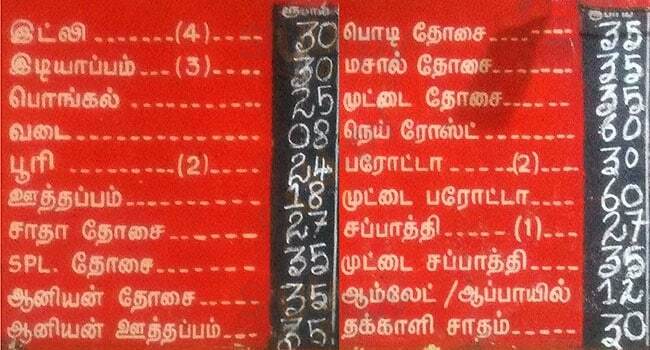 ரூபாய்
இட்லி ........(4)..... 30
இடியாப்பம்....(3)..... 30
பொங்கல் ............... 25
வடை................. 08
பூரி ........(2)....... 24
ஊத்தப்பம்............ 18
சாதா தோசை....... 27
SPL. தோசை......... 35
ஆனியன் தோசை.... 35
ஆனியன் ஊத்தப்பம்.... 35
ரூபாய்
பொடி தோசை....... 35
மசால் தோசை...... 35
முட்டை தோசை.... 35
நெய் ரோஸ்ட்....... 60
பரோட்டா ......(2)... 30
முட்டை பரோட்டா.... 60
சப்பாத்தி ......(1).... 27
முட்டை சப்பாத்தி.... 35
ஆம்லேட் / ஆப்பாயில் 12
தக்காளி சாதம்....... 30